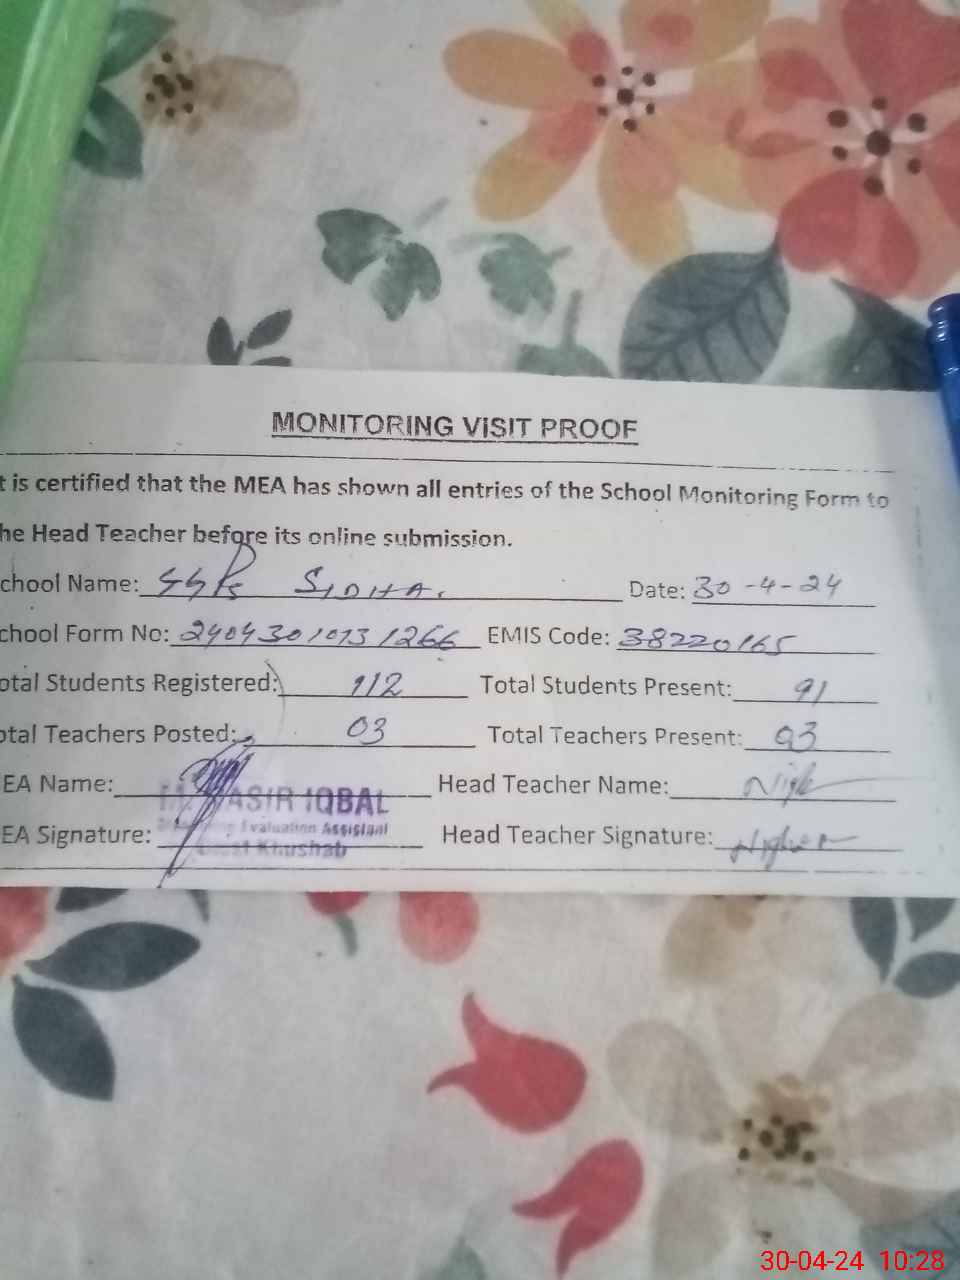 MONITORING VISIT PROOF
t is certified that the MEA has shown all entries of the School Monitoring Form to
he Head Teacher before its online submission.
chool Name: GGPS SIDHA. Date: 30-4-24
chool Form No: 24043010131266 EMIS Code: 38220165
otal Students Registered: 112 Total Students Present: 91
otal Teachers Posted: 03 Total Teachers Present: 03
EA Name: IQBAL Head Teacher Name:
Evaluation Assistant
EA Signature: Khushab Head Teacher Signature:
30-04-24 10:28